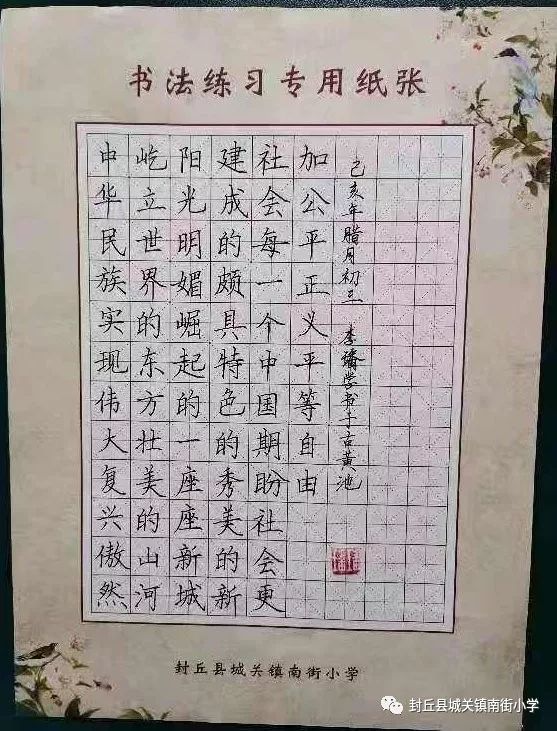 书法练习专用纸张
中华民族实现伟大复兴傲然
屹立世界的东方壮美的山河
阳光明媚崛起的一座座新城
建成的颇具特色的秀美的新
社会每一个中国期盼社会更
加公平正义平等自由
己亥年腊月初三 李书于古黄池
封丘县城关镇南街小学
封丘县城关镇南街小学